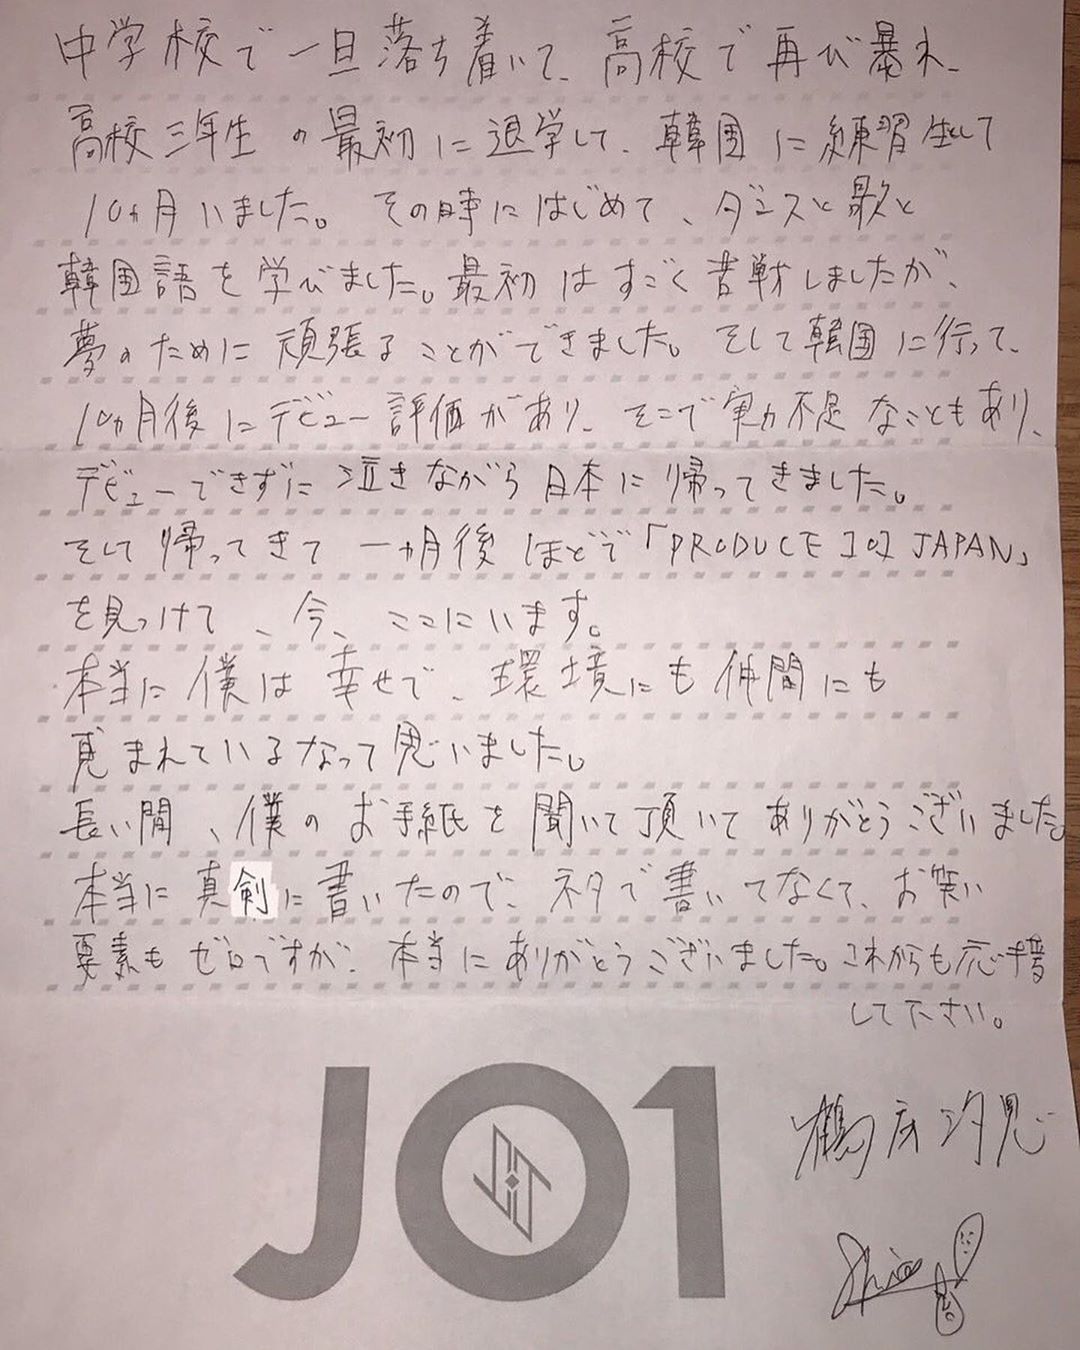 中学校で一旦落ち着いて、高校で再び暴れ、
高校三年生の最初に退学して、韓国に練習生して
10ヵ月いました。その時にはじめて、ダンスと歌と
韓国語を学びました。最初はすごく苦戦しましたが、
夢のために頑張ることができました。そして韓国に行って、
10ヵ月後にデビュー評価があり、そこで実力不足なこともあり、
デビューできずに泣きながら日本に帰ってきました。
そして帰ってきて一ヵ月後ほどで「PRODUCE 101 JAPAN」
を見つけて、今、ここにいます。
本当に僕は幸せで、環境にも仲間にも
恵まれているなって思いました。
長い間、僕のお手紙を聞いて頂いてありがとうございました。
本当に真剣に書いたので、ネタで書いてなくて、お笑い
要素もゼロですが、本当にありがとうございました。これからも応援
して下さい。
JO1
鶴房汐恩